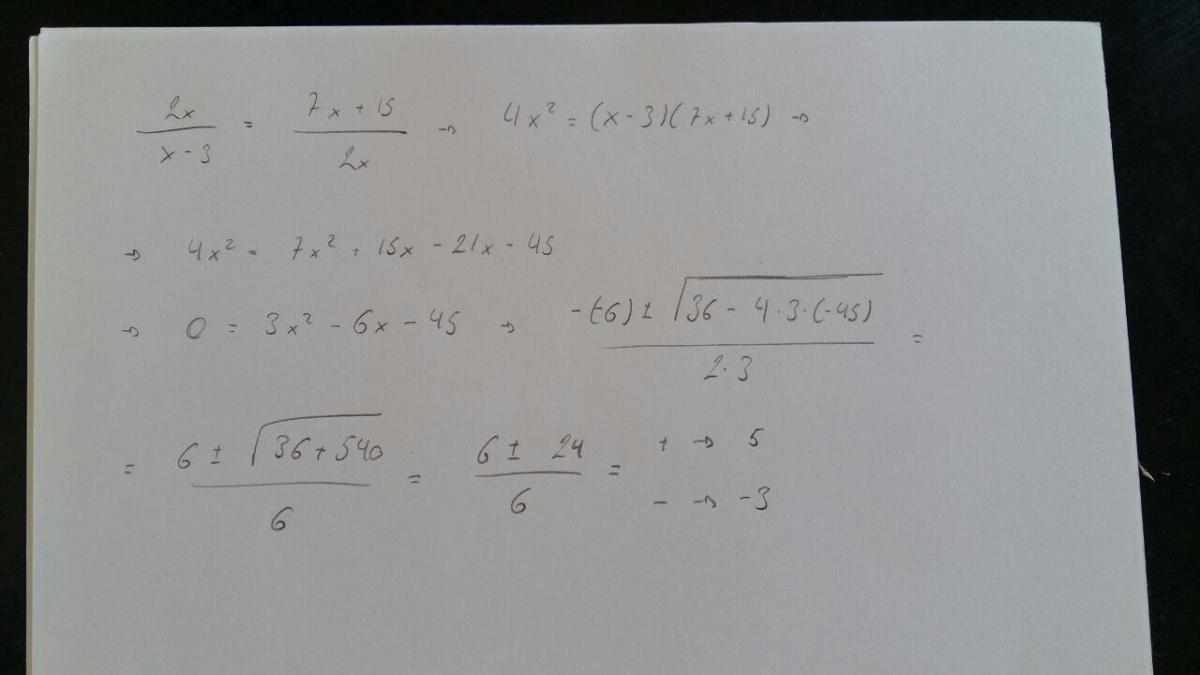 2x/(x - 3) = (7x + 15)/2x → 4x² = (x - 3)(7x + 15) →
→ 4x² = 7x² + 15x - 21x - 45
→ 0 = 3x² - 6x - 45 → (-(-6) ± √(36 - 4·3·(-45)))/(2·3) =
= (6 ± √(36 + 540))/6 = (6 ± 24)/6 = + → 5
- → -3